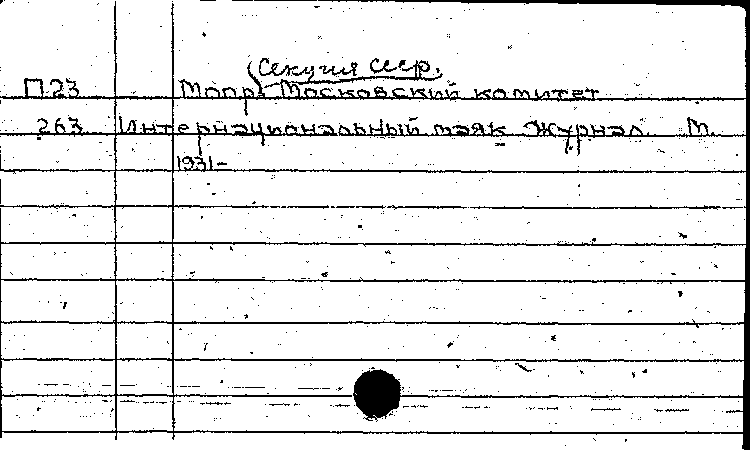 Секция СССР.
П23 Мопр. Московский комитет
263 Интернациональный маяк Журнал. М.
1931-